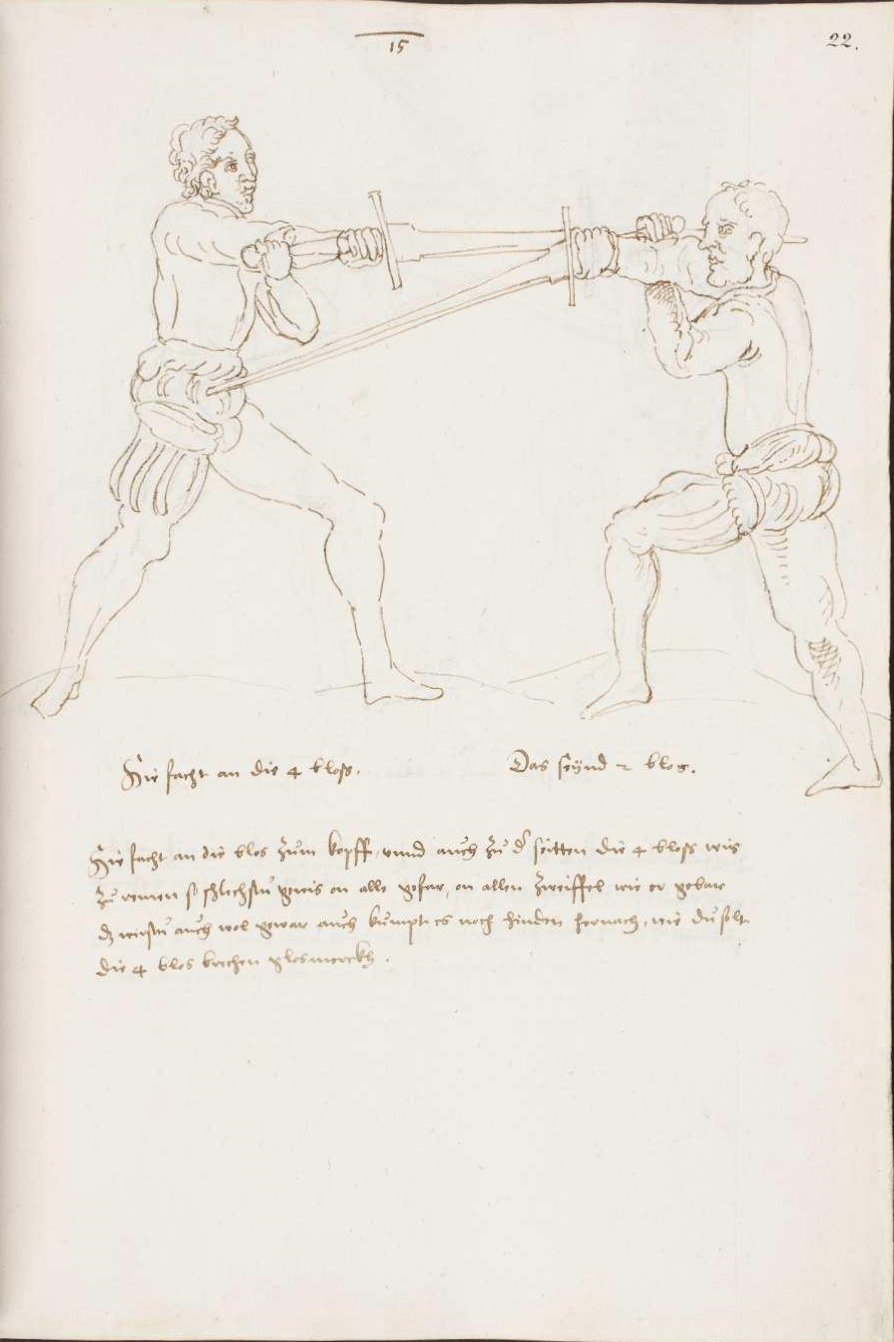 15
22.
Hie facht an die 4 bloß.
Das seÿnd 2 blos.
Hie facht an die blos zum kopff, vnnd auch zu d' seitten die 4 bloß wie
zu remen so schlechstu gewis on alle gefar, on allen zweiffel wie er gebar
dz wirstu auch wol gewar auch kumpt es noch hinden hernach, wie du solt
die 4 blos brechen glos merckh.